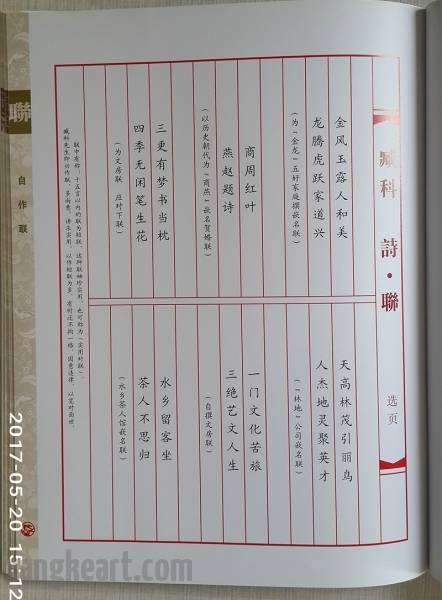 臧科 詩·聯
选页
金风玉露人和美
龙腾虎跃家道兴
（为“金龙”五好家庭撰嵌名联）
商周红叶
燕赵题诗
（以历史朝代为“商燕”嵌名贺婚联）
三更有梦书当枕
四季无闲笔生花
（为文房联 应对下联）
天高林茂引丽鸟
人杰地灵聚英才
（“林地”公司嵌名联）
一门文化苦旅
三绝艺文人生
（自撰文房联）
水乡留客坐
茶人不思归
（水乡茶人馆嵌名联）
联中有称：十五言以内的联为短联，这种联袖珍实用，也可称为“实用对联”。
臧科先生即兴作联，多尚意，讲求实用，以作短联为多，有时还不拘一格，因意违律，以宽对面世。
聯
自作联
2017-05-20 15:12
zangkeart.com